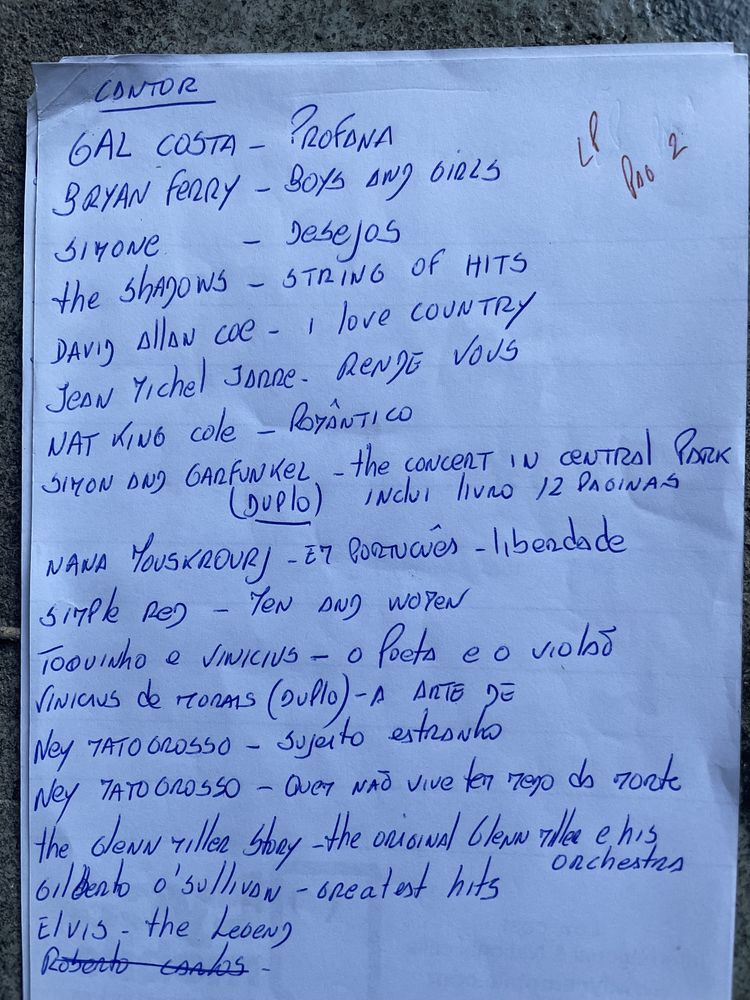 CANTOR
LP
PAG 2
GAL COSTA - PROFANA
BRYAN FERRY - BOYS AND GIRLS
SIMONE - DESEJOS
the SHADOWS - STRING OF HITS
DAVID AllAN COE - I love COUNTRY
JEAN Michel JARRE - RENDE VOUS
NAT KING Cole - ROMÂNTICO
SIMON AND GARFUNKEL - the CONCERT IN CENTRAL PARK
(DUPLO) INCLUI LIVRO 12 PAGINAS
NANA MOUSKROURJ - EM PORTUGUÊS - liberdade
SIMPLE RED - MEN AND WOMEN
TOQUINHO e VINICIUS - O Poeta e o VIOLÃO
VINICIUS de MORAIS (DUPLO) - A ARTE DE
Ney MATOGROSSO - Sujeito estranho
Ney MATOGROSSO - QUEM NÃO VIVE tem medo da morte
the Glenn Miller Story - the ORIGINAL Glenn Miller e his
orchestra
Gilberto O'Sullivan - Greatest hits
Elvis - the Legend
Roberto Carlos -